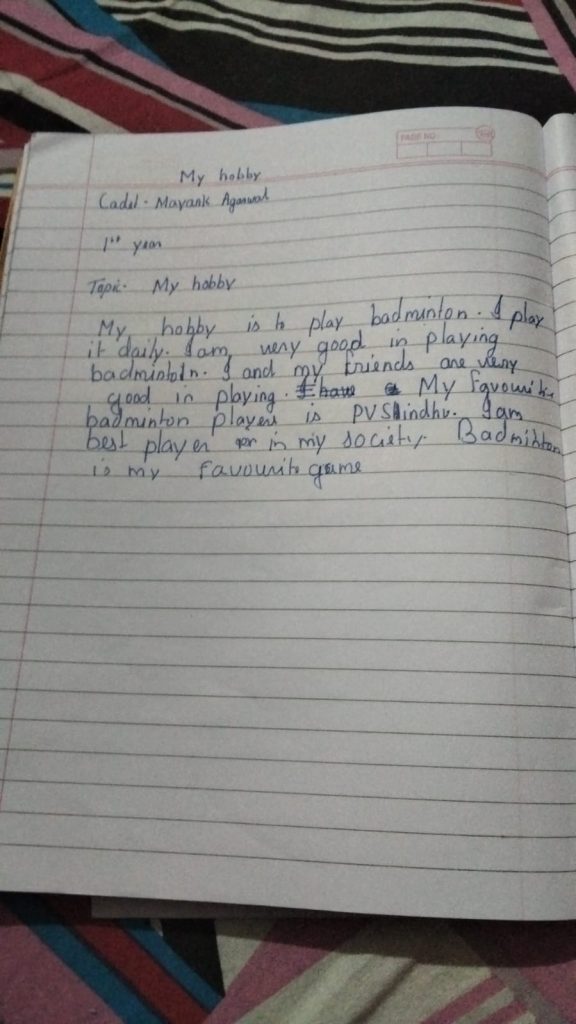 PAGE NO.
My hobby
Cadet - Mayank Agarwal
1st year
Topic - My hobby
My hobby is to play badminton. I play
it daily. I am very good in playing
badminton. I and my friends are very
good in playing. I have My favourite
badminton players is PV Sindhu. I am
best player in my society. Badminton
is my favourite game